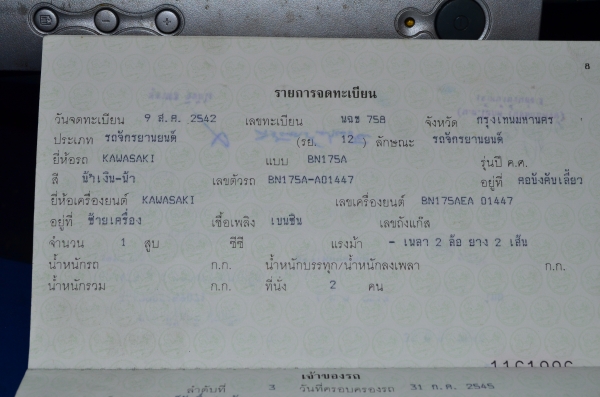 8
รายการจดทะเบียน
วันจดทะเบียน 9 ส.ค. 2542 เลขทะเบียน 758 จังหวัด กรุงเทพมหานคร
ประเภท รถจักรยานยนต์ (รย. 12) ลักษณะ รถจักรยานยนต์
ยี่ห้อรถ KAWASAKI แบบ BN175A รุ่นปี ค.ศ.
สี น้ำเงิน-ฟ้า เลขตัวรถ BN175A-A01447 อยู่ที่ คอบังคับเลี้ยว
ยี่ห้อเครื่องยนต์ KAWASAKI เลขเครื่องยนต์ BN175AEA 01447
อยู่ที่ ซ้ายเครื่อง เชื้อเพลิง เบนซิน เลขถังแก๊ส
จำนวน 1 สูบ ซีซี แรงม้า - เพลา 2 ล้อ ยาง 2 เส้น
น้ำหนักรถ ก.ก. น้ำหนักบรรทุก/น้ำหนักลงเพลา ก.ก.
น้ำหนักรวม ก.ก. ที่นั่ง 2 คน
เจ้าของรถ
ลำดับที่ 3 วันที่ครอบครองรถ 31 ก.ค. 2545